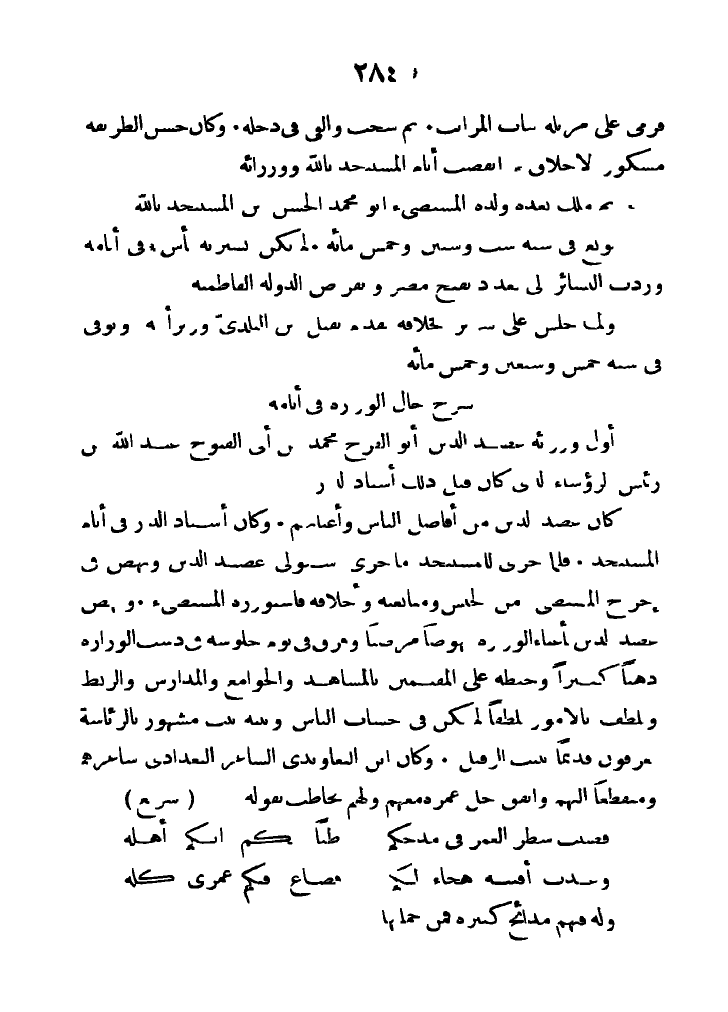 ٢٨٤
فرمى على مزبلة بباب المراتب. ثم سحب وألقي في دجلة. وكان حسن الطريقة
مشكور الأخلاق. انقضت أيام المستنجد بالله ووزرائه
ثم ملك بعده ولده المستضيء أبو محمد الحسن بن المستنجد بالله
بويع في سنة ست وستين وخمس مائة. لم يكن بسيرته بأس. في أيامه
وردت البشائر إلى بغداد بفتح مصر وانقراض الدولة الفاطمية
ولما جلس على سرير الخلافة بقتل ابن البلدي وزير أبيه وتوفي
في سنة خمس وسبعين وخمس مائة
شرح حال الوزارة في أيامه
أول وزرائه عضد الدين أبو الفرج محمد بن أبي الفتوح عبد الله بن
رئيس الرؤساء الذي كان قبل ذلك أستاذ الدار
كان عضد الدين من أفاضل الناس وأعيانهم. وكان أستاذ الدار في أيام
المستنجد. فلما جرى للمستنجد ما جرى استولى عضد الدين ونهض في
إخراج المستضيء من الحبس ومبايعته وأحلافه فاستوزره المستضيء. ونهض
عضد الدين بأعباء الوزارة نهوضاً مرضياً وفرق في يوم جلوسه في دست الوزارة
ذهباً كثيراً وحنطة على المقيمين بالمشاهد والجوامع والمدارس والربط
ولطف بالأمور لطفاً لم يكن في حساب الناس وبيته بيت مشهور بالرئاسة
يعرفون قديماً ببيت الرفيل. وكان ابن التعاويذي الشاعر البغدادي شاعرهم
ومنقطعاً إليهم وأنفق جل عمره معهم ولهم يخاطب بقوله (سريع)
قضيت شطر العمر في مدحكم ظناً بكم أنكم أهله
وعدت أفنيه هجاء لكم فضاع فيكم عمري كله
وله فيهم مدائح كثيرة فمن جملتها